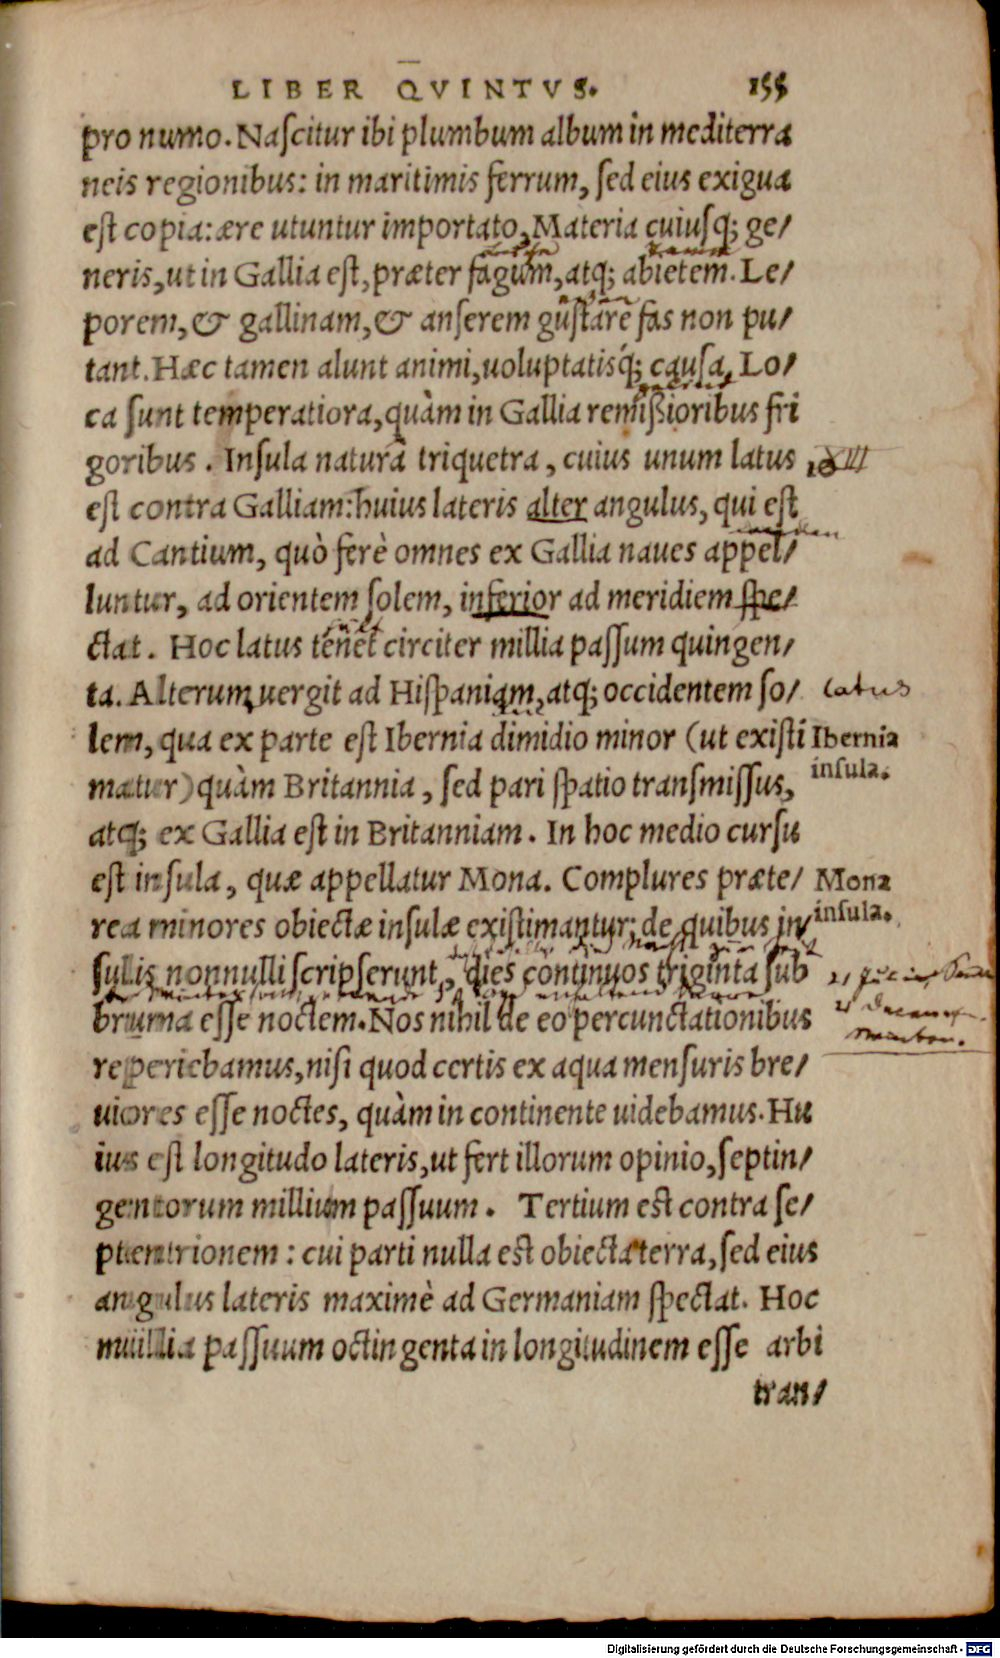 LIBER QVINTVS. 155
pro numo. Naſcitur ibi plumbum album in mediterra
neis regionibus: in maritimis ferrum, ſed eius exigua
eſt copia: ære utuntur importato, Materia cuiuſq; ge/
neris, ut in Gallia eſt, præter fagum, atq; abietem. Le/
porem, & gallinam, & anſerem guſtare fas non pu/
tant. Hæc tamen alunt animi, uoluptatisq́; cauſa. Lo/
ca ſunt temperatiora, quàm in Gallia remißioribus fri
goribus. Inſula natura triquetra, cuius unum latus
eſt contra Galliam: huius lateris alter angulus, qui eſt
ad Cantium, quò ferè omnes ex Gallia naues appel/
luntur, ad orientem ſolem, inferior ad meridiem ſpe/
ctat. Hoc latus tenet circiter millia paſſum quingen/
ta. Alterum uergit ad Hiſpaniam, atq; occidentem ſo/
latus
lem, qua ex parte eſt Ibernia dimidio minor (ut exiſti
Ibernia
matur) quàm Britannia, ſed pari ſpatio tranſmiſſus,
inſula.
atq; ex Gallia eſt in Britanniam. In hoc medio curſu
eſt inſula, quæ appellatur Mona. Complures præte/
Mona
rea minores obiectæ inſulæ exiſtimantur: de quibus in/
inſula.
ſulis nonnulli ſcripſerunt, dies continuos triginta ſub
bruma eſſe noctem. Nos nihil de eo percunctationibus
reperiebamus, niſi quod certis ex aqua menſuris bre/
uiores eſſe noctes, quàm in continente uidebamus. Hu
ius eſt longitudo lateris, ut fert illorum opinio, ſeptin/
gentorum millium paſſuum. Tertium eſt contra ſe/
ptentrionem: cui parti nulla eſt obiecta terra, ſed eius
angulus lateris maximè ad Germaniam ſpectat. Hoc
millia paſſuum octingenta in longitudinem eſſe arbi
tran/
Digitalisierung gefördert durch die Deutsche Forschungsgemeinschaft - DFG